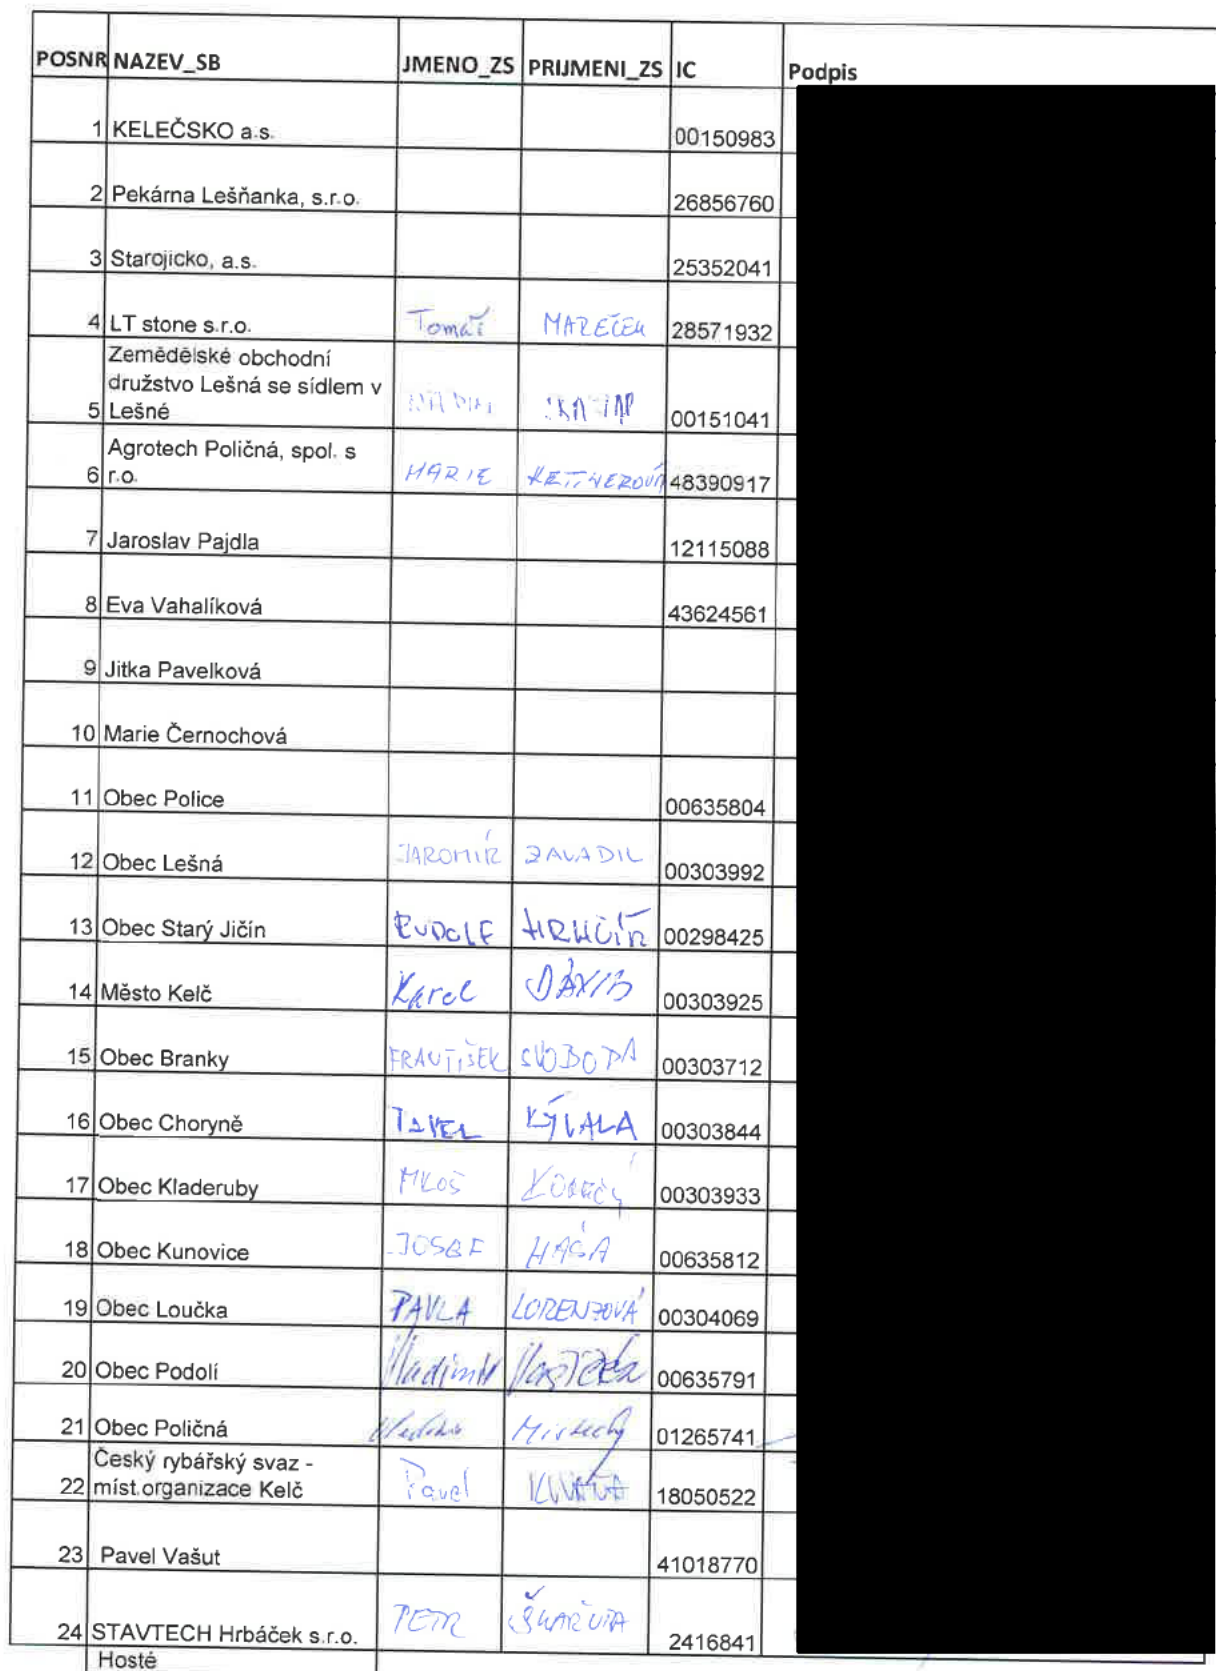 POSNR NAZEV_SB JMENO_ZS PRIJMENI_ZS IC Podpis
1 KELEČSKO a.s. 00150983
2 Pekárna Lešňanka, s.r.o. 26856760
3 Starojicko, a.s. 25352041
4 LT stone s.r.o. Tomáš MAREČEK 28571932
Zemědělské obchodní
družstvo Lešná se sídlem v
5 Lešné 00151041
Agrotech Poličná, spol. s
6 r.o. MARIE KETTNEROVÁ 48390917
7 Jaroslav Pajdla 12115088
8 Eva Vahalíková 43624561
9 Jitka Pavelková
10 Marie Černochová
11 Obec Police 00635804
12 Obec Lešná JAROMÍR ZAVADIL 00303992
13 Obec Starý Jičín RUDOLF 00298425
14 Město Kelč Karel DAVID 00303925
15 Obec Branky FRANTIŠEK SVOBODA 00303712
16 Obec Choryně PAVEL KÝVALA 00303844
17 Obec Kladeruby MILOŠ 00303933
18 Obec Kunovice JOSEF HÁŠA 00635812
19 Obec Loučka PAVLA LORENZOVÁ 00304069
20 Obec Podolí Vladimír 00635791
21 Obec Poličná 01265741
Český rybářský svaz -
22 míst.organizace Kelč Pavel 18050522
23 Pavel Vašut 41018770
24 STAVTECH Hrbáček s.r.o. PETR ŠKAŘUPA 2416841
Hosté